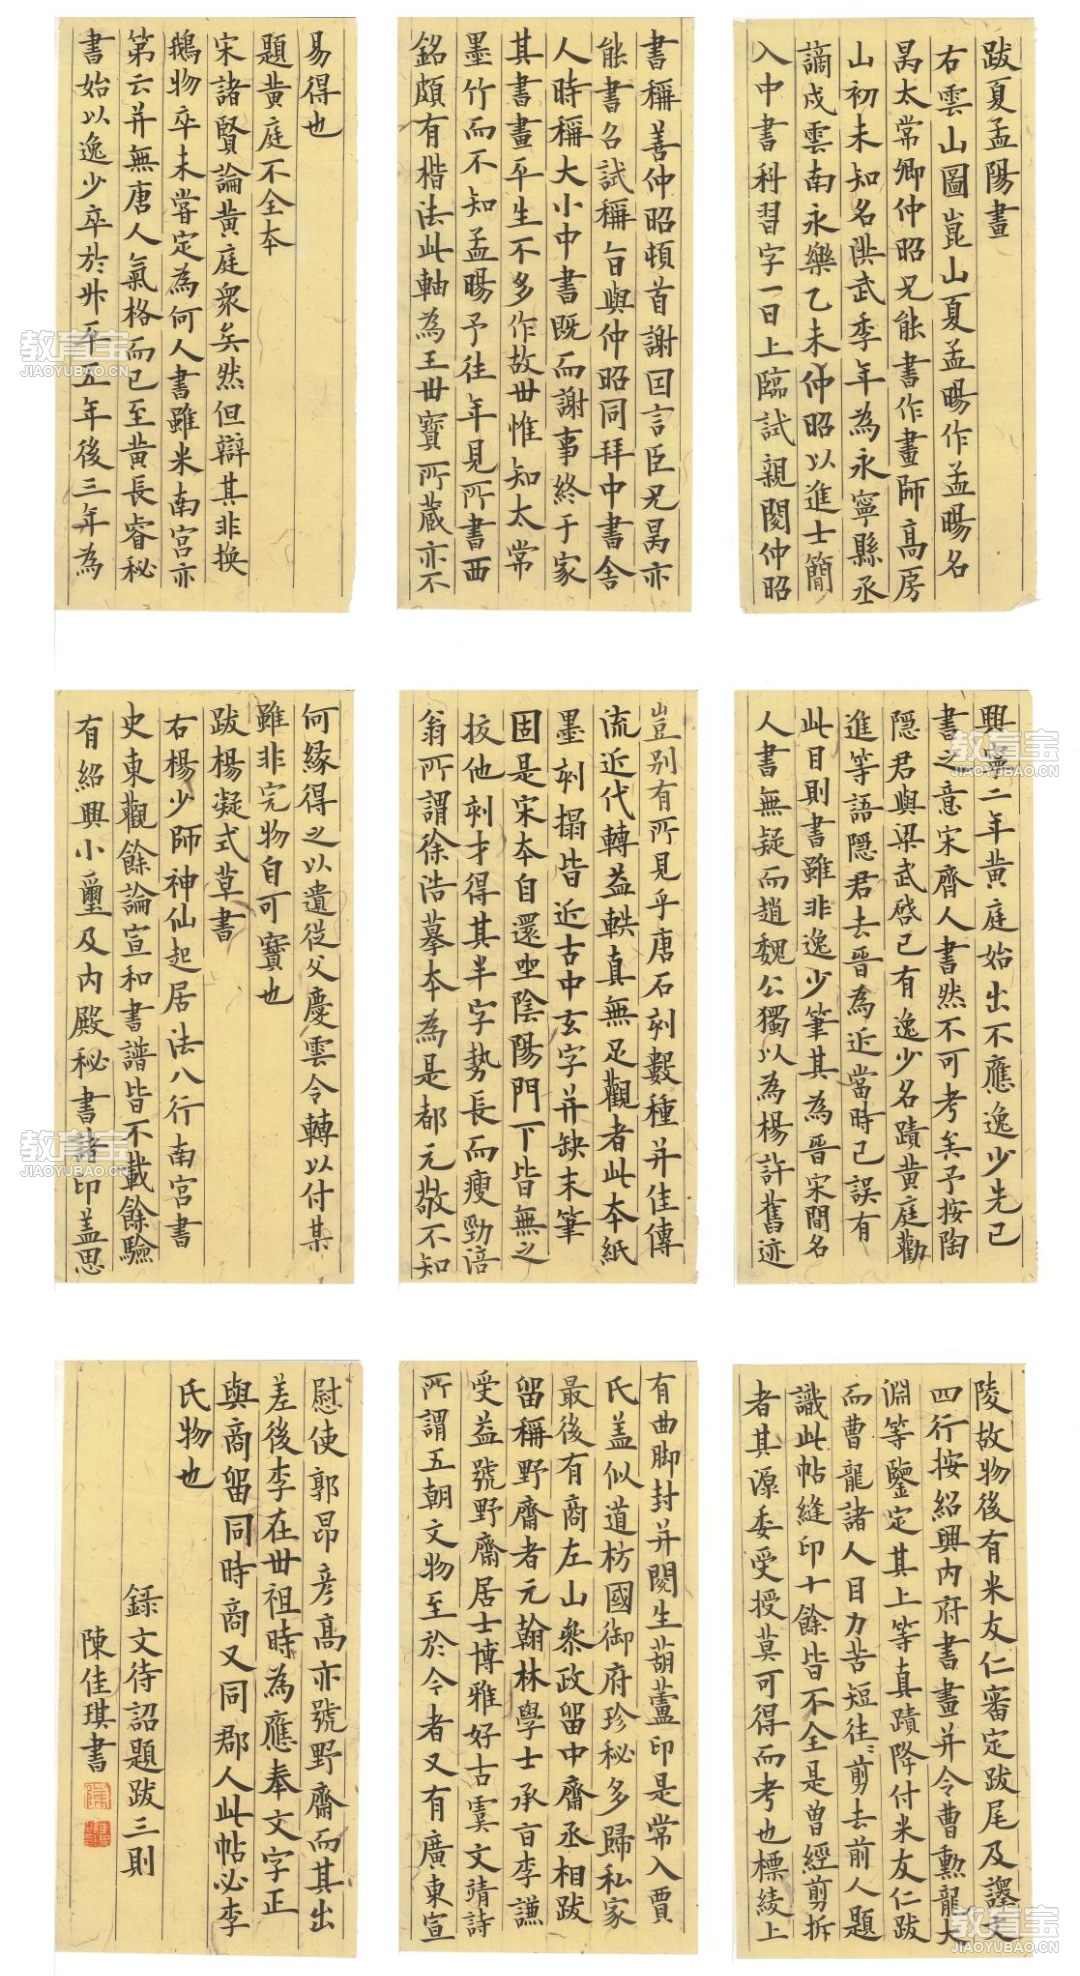 跋夏孟陽畫
右雲山圖崑山夏孟暘作孟暘名
昺太常卿仲昭兄能書作畫師高房
山初未知名洪武季年為永寧縣丞
謫戍雲南永樂乙未仲昭以進士簡
入中書科習字一日上臨試親閱仲昭
書稱善仲昭頓首謝因言臣兄昺亦
能書召試稱旨與仲昭同拜中書舍
人時稱大小中書既而謝事終于家
其書畫平生不多作故世惟知太常
墨竹而不知孟暘予往年見所書西
銘頗有楷法此軸為王世寶所藏亦不
易得也
題黃庭不全本
宋諸賢論黃庭衆矣然但辯其非換
鵝物卒未嘗定為何人書雖米南宮亦
第云并無唐人氣格而已至黃長睿秘
書始以逸少卒於升平五年後三年為
興寧二年黃庭始出不應逸少先已
書之意宋齊人書然不可考矣予按陶
隱君與梁武啓已有逸少名蹟黃庭勸
進等語隱君去晉為近當時已誤有
此目則書雖非逸少筆其為晉宋間名
人書無疑而趙魏公獨以為楊許舊迹
豈別有所見乎唐石刻數種并佳傳
流近代轉益軼真無足觀者此本紙
墨刻搨皆近古中玄字并缺末筆
固是宋本自還坐陰陽門下皆無之
挍他刻才得其半字勢長而瘦勁涪
翁所謂徐浩摹本為是都元敬不知
何緣得之以遺從父慶雲令轉以付某
雖非完物自可寶也
跋楊凝式草書
右楊少師神仙起居法八行南宮書
史東觀餘論宣和書譜皆不載餘驗
有紹興小璽及内殿秘書諸印蓋思
陵故物後有米友仁審定跋尾及譯文
四行按紹興内府書畫并令曹勳龍大
淵等鑒定其上等真蹟降付米友仁跋
而曹龍諸人目力苦短往〻剪去前人題
識此帖縫印十餘皆不全是曾經剪拆
者其源委受授莫可得而考也標綾上
有曲脚封并閱生葫蘆印是常入賈
氏蓋似道枋國御府珍秘多歸私家
最後有商左山參政留中齋丞相跋
留稱野齋者元翰林學士承旨李謙
受益號野齋居士博雅好古虞文靖詩
所謂五朝文物至於今者又有廣東宣
慰使郭昂彦高亦號野齋而其出
差後李在世祖時為應奉文字正
與商留同時商又同郡人此帖必李
氏物也
錄文待詔題跋三則
陳佳琪書
教育宝
JIAOYUBAO.CN
教育宝
JIAOYUBAO.CN
教育宝
JIAOYUBAO.CN
教育宝
JIAOYUBAO.CN